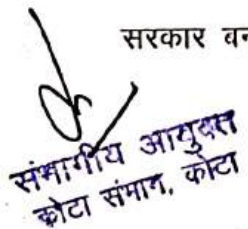 सरकार बन
संभागीय आयुक्त
कोटा संभाग, कोटा